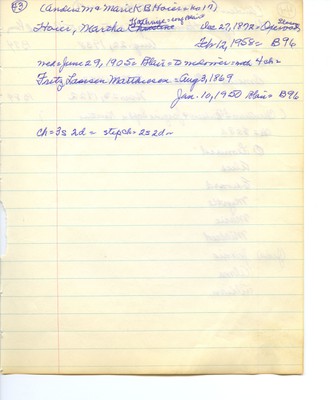 #3 (Anders M = Marie K B Hoier = no 17)
Hoier, Martha Christine Dec 27, 1872 =
Feb 12, 1958 = B96
md = June 29, 1905 = Blair = 4 ch =
Fritz Lawson Matthiesen = Aug 3, 1869
Jan. 10, 1950 Blair = B96
ch = 3s 2d = step ch = 2s 2d -